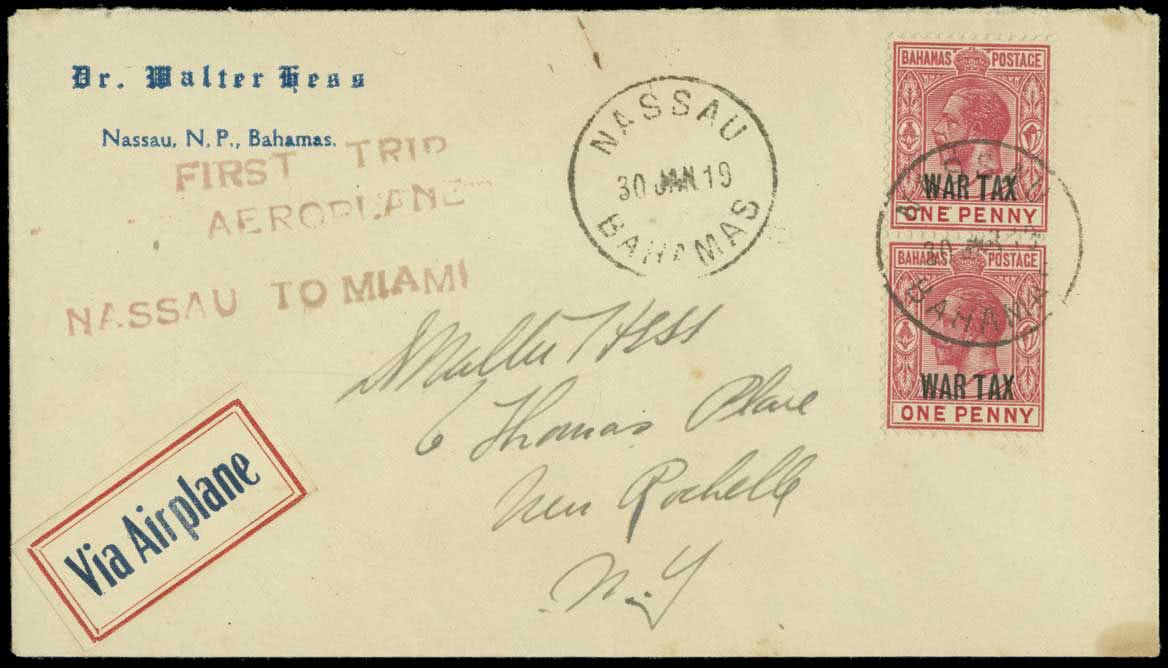 Dr. Walter Hess
Nassau, N. P., Bahamas.
FIRST TRIP
AEROPLANE
NASSAU TO MIAMI
NASSAU
30 JAN 19
BAHAMAS
BAHAMAS POSTAGE
WAR TAX
ONE PENNY
NASSAU
30 JAN 19
BAHAMAS
BAHAMAS POSTAGE
WAR TAX
ONE PENNY
Walter Hess
6 Thomas Place
New Rochelle
N.Y
Via Airplane